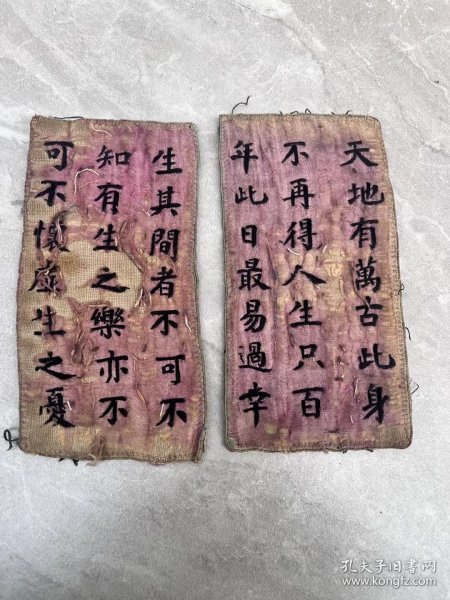 天地有萬古此身
不再得人生只百
年此日最易過幸
生其間者不可不
知有生之樂亦不
可不懷虛生之憂
孔夫子旧书网
www.kongfz.com